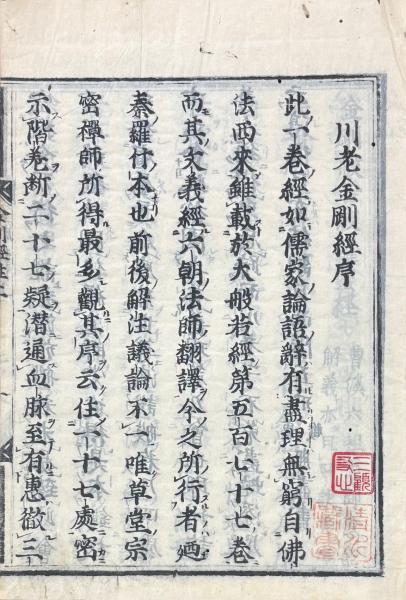 川老金剛經序
此一卷經如儒家論語辭有盡理無窮自佛
法西來雖載於大般若經第五百七十七卷
而其文義經六朝法師翻譯今之所行者廼
秦羅什本也前後解注議論不一唯草堂宗
密禪師所得最多觀其序云住一十七處密
示階差斷二十七疑潛通血脉至有惠徹二